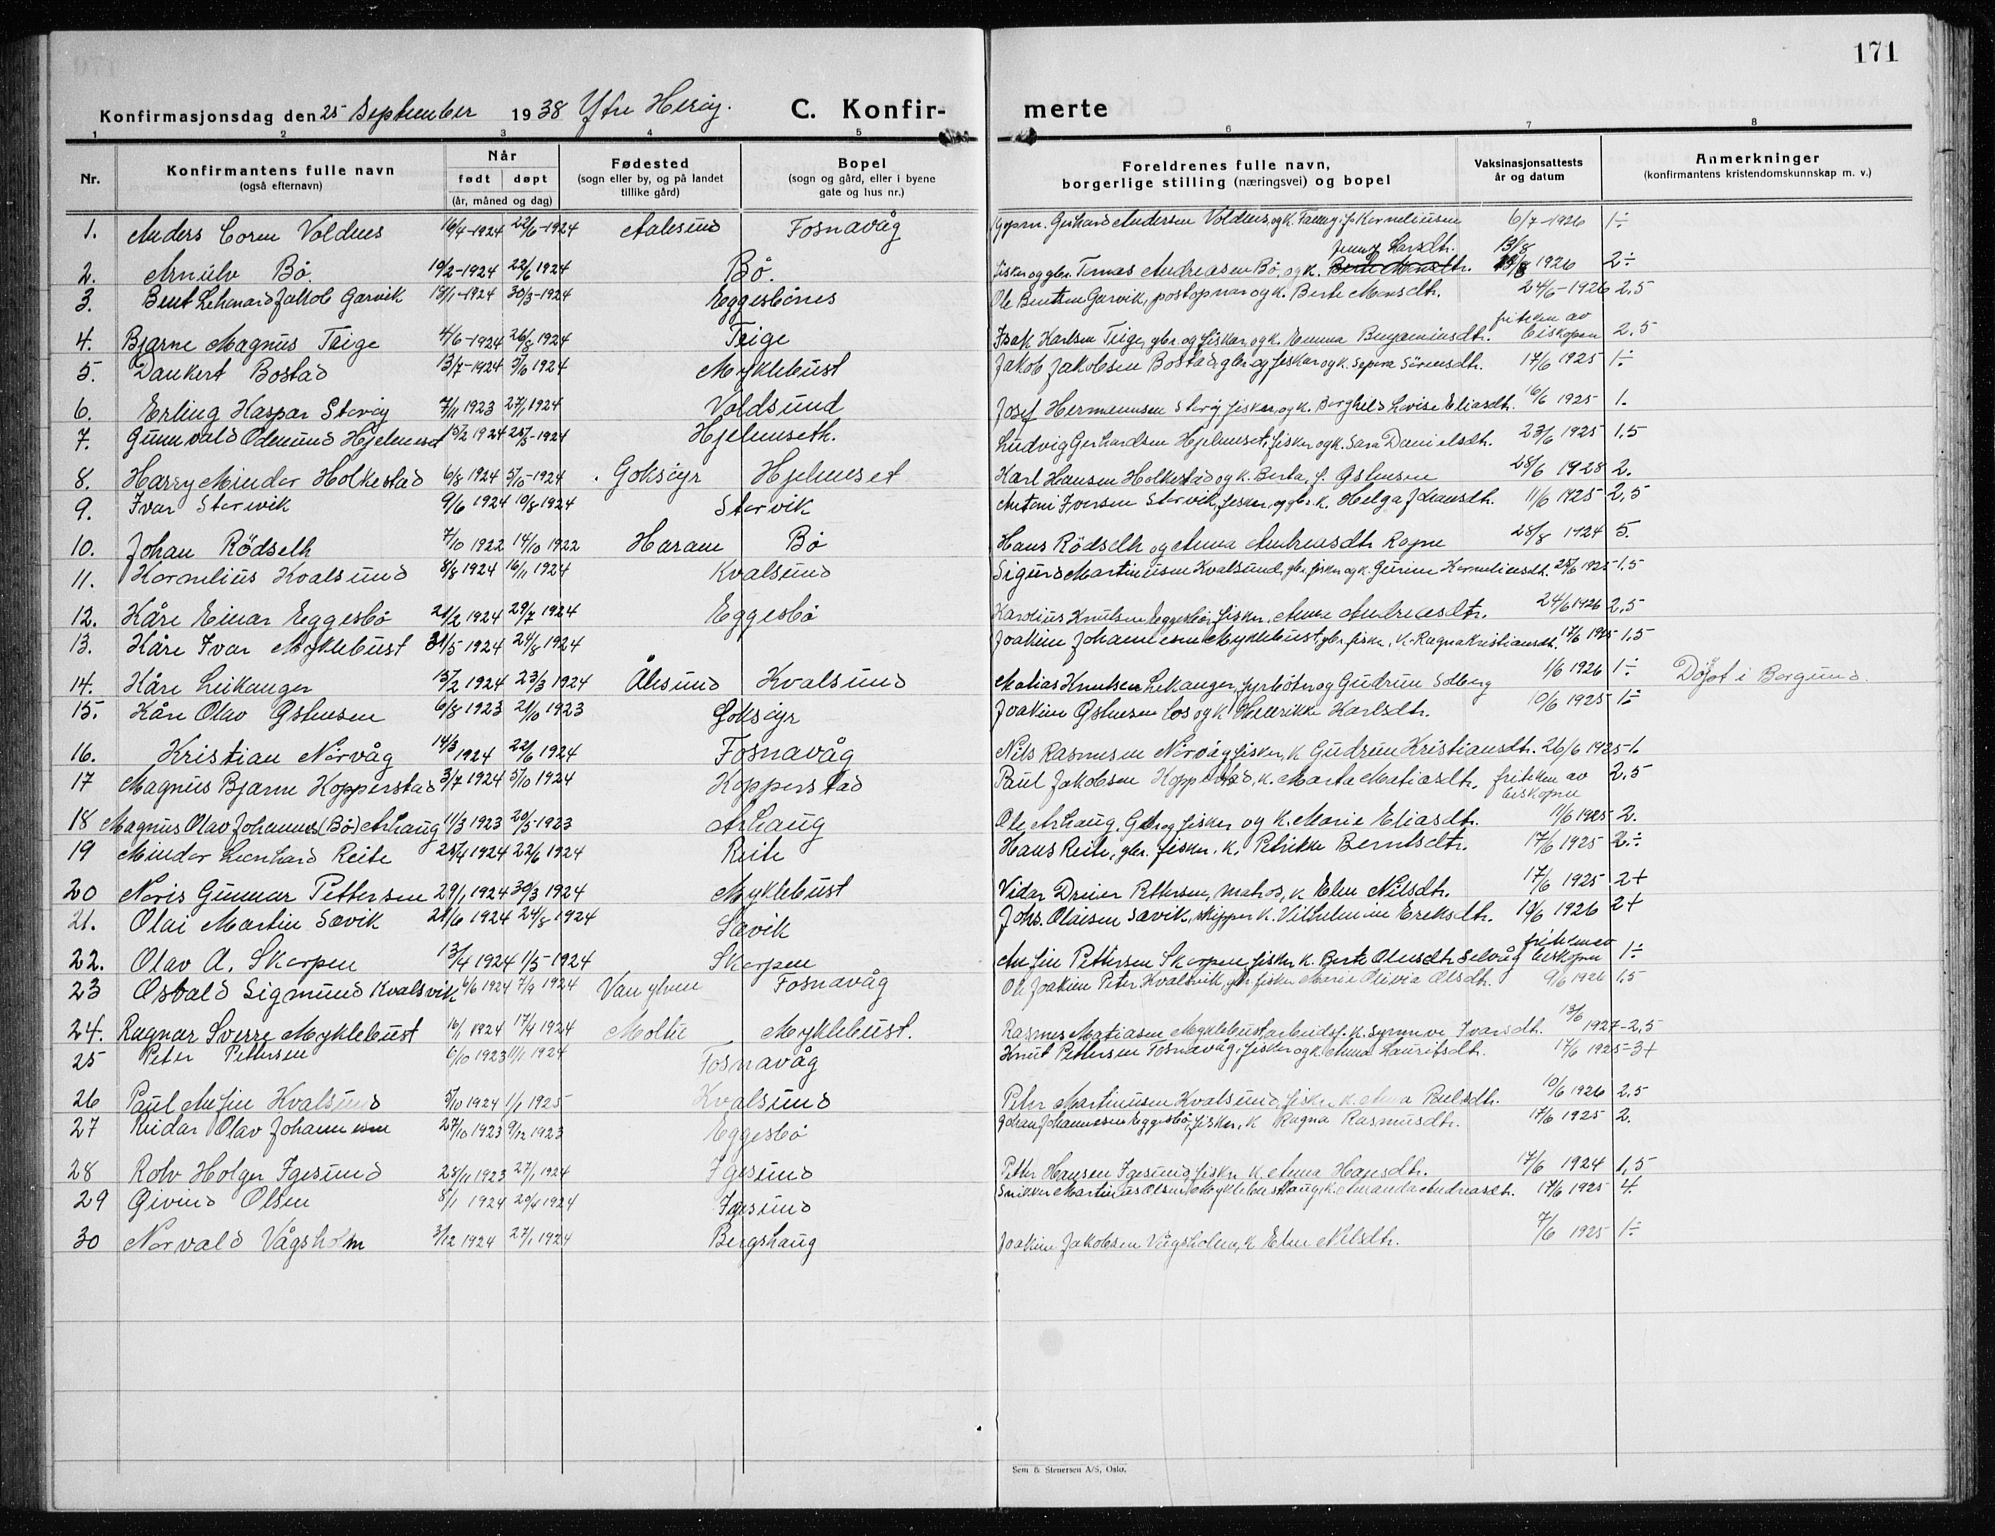 171
Konfirmasjonsdag den 25 September 1938 Ytre Herøy. C. Konfir- merte
1 2 3 4 5 6 7 8
Nr. Konfirmantens fulle navn (også efternavn) Når født døpt (år, måned og dag) Fødested (sogn eller by, og på landet tillike gård) Bopel (sogn og gård, eller i byene gate og hus nr.) Foreldrenes fulle navn, borgerlige stilling (næringsvei) og bopel Vaksinasjonsattests år og datum Anmerkninger (konfirmantens kristendomskunnskap m. v.)
1. Anders Coren Voldnes 16/4-1924 22/6-1924 Aalesund Fosnavåg Gerhard Andersen Voldnes, og k. Fanny f. Korneliussen 6/7-1926 1÷
Jenny Larsdtr. 13/8
2. Arnulv Bø. 10/2-1924 22/6 1924 Bø. Fisker og gbr. Tomas Andreasen Bø, og k. Berte Monsdtr. 13/8 1926 2÷
3. Bent Lehnard Jakob Garvik 19/1-1924 30/3-1924 Eggesbönes Ole Bentsen Garvik, postopnar og k. Berte Monsdtr. 24/6-1926 2,5
4. Bjarne Magnus Teige 4/6-1924 26/8 1924 Teige Isak Karlsen Teige, gbr. og fisker, og k. Emma Benjaminsdtr. fritken av biskopen 2,5
5. Dankert Bostad 13/7-1924 5/10 1924 Myklebust Jakob Jakobsen Bostad, gbr. og fisker og k. Severa Sörensdtr. 17/6 1925 1÷
6. Erling Kaspar Storöy 7/11 1923 27/1 1924 Voldsund Josef Hermannsen Storöy fisker, og k. Borghild Lovise Eliasdtr. 16/6 1925 1.
7. Gunnvald Odmund Hjelmeset 15/2 1924 25/5-1924 Hjelmseth. Ludvig Gerhardsen Hjelmset, fisker og k. Sara Danielsdtr. 23/6 1925 1,5
8. Harry Mindor Holkestad 6/8 1924 5/10-1924 Goksöyr Hjelmset Karl Hansen Holkestad og k. Berta f. Østensen 28/6 1928 2.
9. Ivar Storvik 9/6 1924 10/8 1924 Storvik Antoni Iversen Storvik, fisker, og gbr. k. Helga Johansdtr. 11/6 1925 2,5
10. Johan Rödseth 7/10 1922 14/10 1922 Haram Bö Hans Rödseth og Anna Andreasdtr Rogne 28/8 1924 5.
11. Kornelius Kvalsund 8/8 1924 16/11 1924 Kvalsund Sigurd Martinusen Kvalsund, gbr. fisker og k. Gurine Korneliusdtr. 25/6 1925 1,5
12. Kåre Einar Eggesbö 21/2 1924 29/7 1924 Eggesbö Karolius Knutsen Eggesbö, fisker, Anna Andreasdtr. 24/6 1926 2,5
13. Kåre Ivar Myklebust 31/5 1924 24/8 1924 Joakim Johannesen Myklebust, gbr. fisker, k. Ragna Kristiansdtr. 17/6 1925 1,5
14. Kåre Leikanger 15/2 1924 23/3 1924 Ålesund Kvalsund Matias Knutsen Leikanger, fyrböter og Gudrun Solberg 1/6 1926 1÷ Döpt i Borgund.
15. Kåre Olav Østensen 6/8 1923 21/10 1923 Goksöyr Joakim Østensen los og k Henrikke Karlsdtr. 10/6 1925 1÷
16. Kristian Nörvåg 14/3 1924 22/6 1924 Fosnavåg Nils Rasmusen Nörvåg fisker, k Gudrun Kristiansdtr. 26/6 1925 1.
17 Magnus Bjarne Kopperstad 3/7 1924 5/10 1924 Kopperstad Paul Jakobsen Kopperstad, k. Marta Matiasdtr. fritken av biskopen 2,5
18 Magnus Olav Johannes (Bö) Arhaug 11/3 1923 20/5-1923 Arhaug Ole Arhaug, Gbr og fisker og k. Marie Eliasdtr. 11/6 1925 2.
19 Mindor Leonhard Reite 25/4 1924 22/6 1924 Reite Hans Reite, gbr. fisker. k. Petrikke Berntsdtr. 17/6 1925 2÷
20 Noris Gunnar Pettersen 29/1 1924 30/3 1924 Myklebust Vidar Dreier Pettersen, matros, k Elen Nilsdtr. 17/6 1925 2+
21. Olai Martin Sævik 21/6 1924 24/8-1924 Sævik Johs. Olaisen Sævik, skipper k. Vilhelmine Eriksdtr. 19/6 1926 2+
22. Olav A. Skorpen 13/4 1924 11/5-1924 Skorpen Anfin Pettersen Skorpen, fisker k. Berte Olausdtr Selvåg fritken av biskopen 1÷
23 Osvald Sigmund Kvalsvik 6/6 1924 7/9 1924 Vanylven Fosnavåg Ole Joakim Peter Kvalsvik, gbr. fisker Marie Olivia Olsdtr. 9/6 1926 1,5
24. Ragnar Sverre Myklebust 16/1 1924 17/4 1924 Moltu Myklebust. Rasmus Matiasen Myklebust arbeidsf. k. Synnøve Ivarsdtr. 18/6 1927-2,5
25 Peter Pettersen 6/10 1923 1/1 1924 Fosnavåg Knut Pettersen Fosnavåg, fisker og k. Anna Lauritsdtr. 17/6 1925 3+
26 Paul Anfin Kvalsund 5/10 1924 1/1 1925 Kvalsund Peter Martinusen Kvalsund, fisker k. Anna Paulsdtr. 10/6 1926 2,5
27 Reidar Olav Johannesen 27/10 1923 9/12 1923 Eggesbö Johan Johannesen Eggesbö, fisker, k Ragna Rasmusdtr. 17/6 1925 2.
28 Rolv Holger Igesund 25/11 1923 27/1 1924 Igesund Petter Hansen Igesund, fisker k. Anna Hansdtr. 17/6 1924 1,5
29 Öivind Olsen 8/1 1924 20/4 1924 Igesund Snikker Martinus Olsen Myklebusthaug, k. Amanda Andreasdtr. 17/6 1925 4.
30 Norvald Vågsholm 3/12 1924 27/1 1924 Bergshaug Joakim Jakobsen Vågsholm, k Elen Nilsdtr. 7/6 1925 1÷
Sem & Stenersen A/S, Oslo.